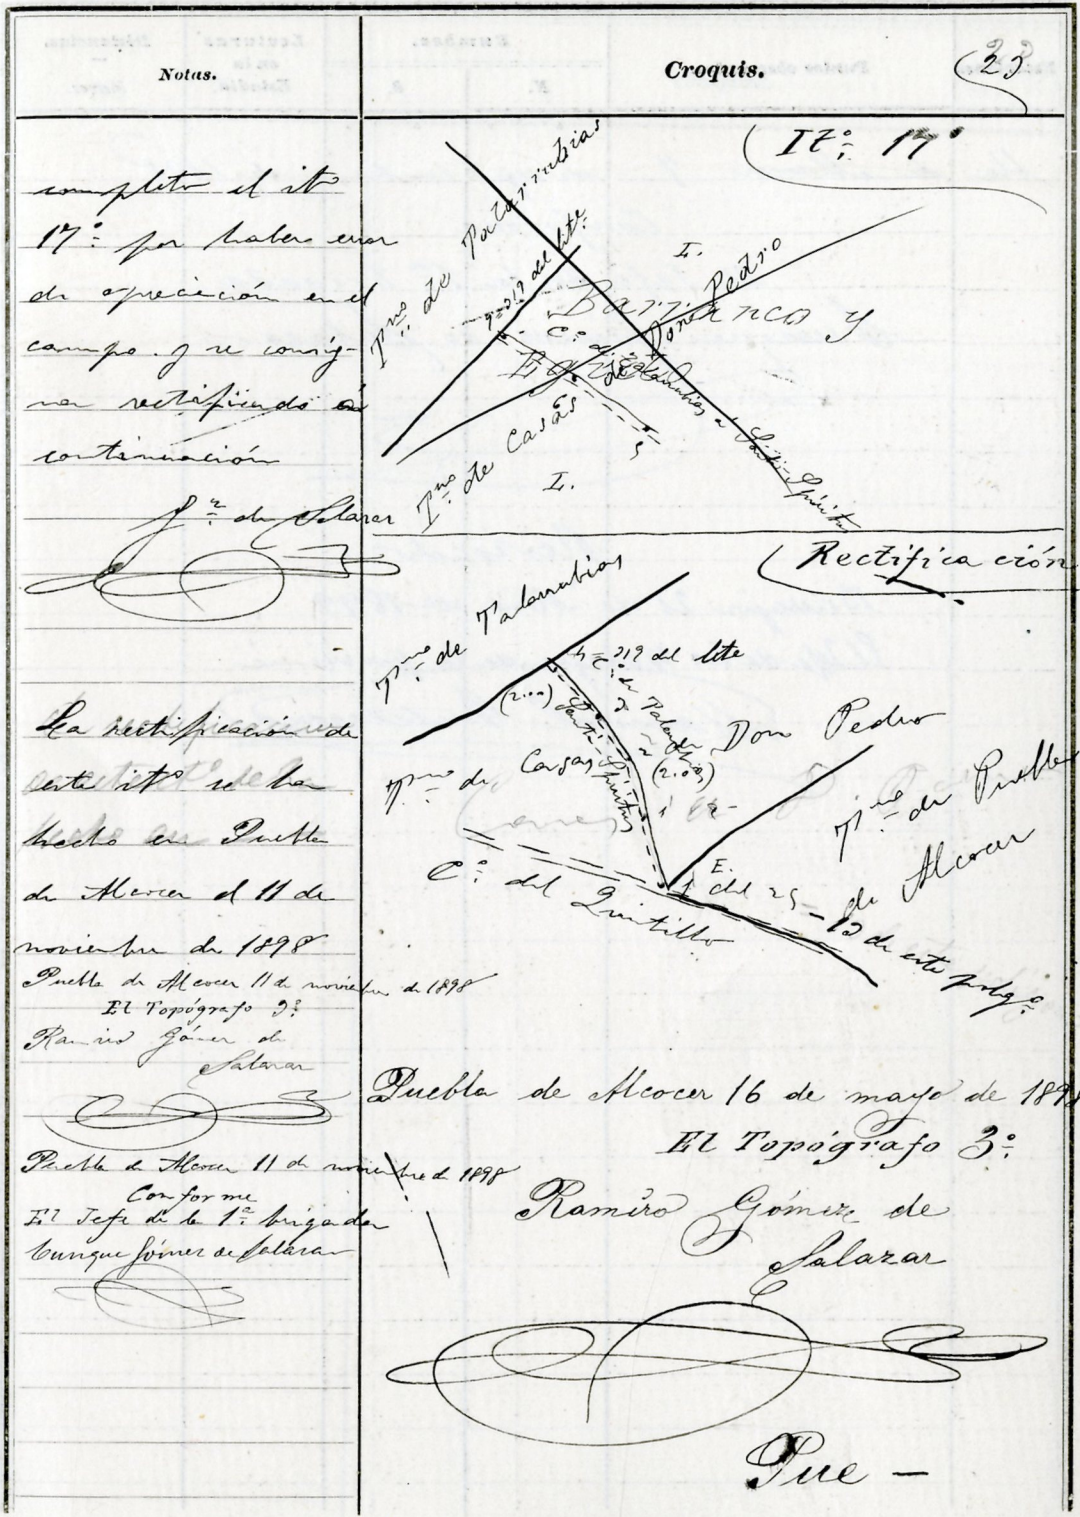 Notas.
Croquis.
23
completa el itº
17º por haber error
de apreciación en el
campo. y se consig-
na rectificado á
continuación
G.z de Salazar
La rectificación de
este itº se ha
hecho en Puebla
de Alcocer el 11 de
noviembre de 1898
Puebla de Alcocer 11 de noviembre de 1898
El Topógrafo 3º
Ramiro Gómez de
Salazar
Puebla de Alcocer 11 de noviembre de 1898
Conforme
El Jefe de la 1ª brigada
Enrique Gómez de Salazar
Itº 17º
Tno de Talarrubias
4=219 del lite.
I.
Barranco y
Don Pedro
Cº de Talarrubias a Santi-Spíritus
Tno de Casas de
5
I.
Rectificación
Tno de Talarrubias
4=219 del lite
Cº de Talarrubias
(2.00)
Santi-Spíritus
(2.00)
Tno de Casas Don Pedro
Tno de Puebla
de Alcocer
Cº del Quintillo
E.
1 del 25-13 de este polgº
Puebla de Alcocer 16 de mayo de 1898
El Topógrafo 3º
Ramiro Gómez de
Salazar
Pue-